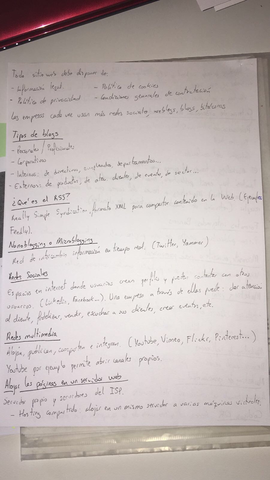 Todo sitio web debe disponer de:
- Información legal - Política de cookies
- Política de privacidad - Condiciones generales de contratación
Las empresas cada vez usan más redes sociales, weblogs, blogs,
Tipos de blogs
- Personales / Profesionales
- Corporativos
- Internos: de directivos, empleados, departamentos...
- Externos: de productos, de atn. clientes, de evento, de
¿Qué es el RSS?
Really Simple Syndication, formato XML para compartir contenido en la web (Ejemplos
Feedly).
Nanoblogging o Microblogging
Red de intercambio información en tiempo real. (Twitter, Yammer)
Redes Sociales
Espacios en internet donde usuarios crean perfiles y pueden contactar con otros
usuarios (LinkedIn, Facebook...). Una empresa a través de ellas puede: dar atención
al cliente, fidelizar, vender, escuchar a sus clientes, crear eventos, etc.
Redes multimedia
Alojan, publican, comparten e integran (Youtube, Vimeo, Flickr, Pinterest...)
Youtube por ejemplo permite abrir canales propios.
Alojar las páginas en un servidor web
servidor propio y servidores del ISP
- Hosting compartido: alojar en un mismo servidor a varias máquinas virtuales.